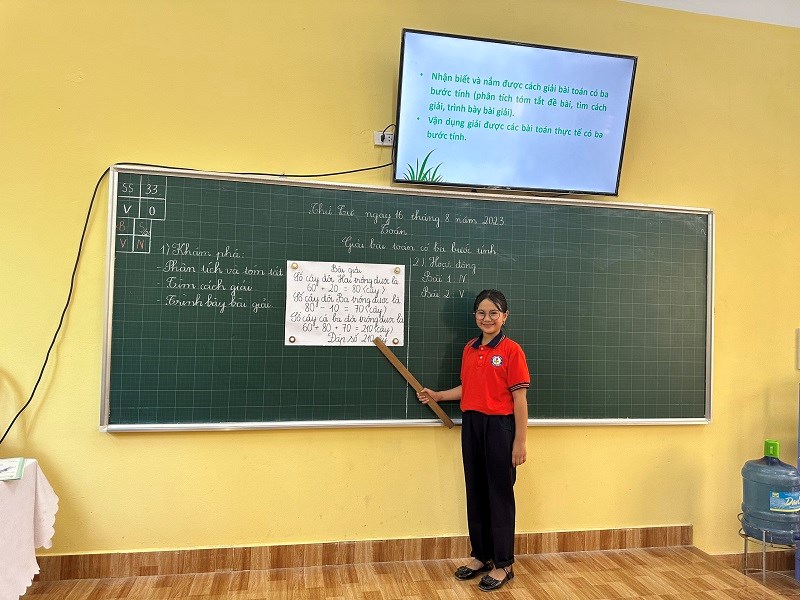 • Nhận biết và nắm được cách giải bài toán có ba
bước tính (phân tích tóm tắt đề bài, tìm cách
giải, trình bày bài giải).
• Vận dụng giải được các bài toán thực tế có ba
bước tính.
SS 33
V 0
B
V N
Thứ Tư ngày 16 tháng 8 năm 2023
Toán
Giải bài toán có ba bước tính
1) Khám phá:
- Phân tích và tóm tắt
- Tìm cách giải
- Trình bày bài giải
Bài giải
Số cây đội Hai trồng được là
60 + 20 = 80 (cây)
Số cây đội Ba trồng được là
80 - 10 = 70 (cây)
Số cây cả ba đội trồng được là
60 + 80 + 70 = 210 (cây)
Đáp số 210
2) Hoạt động
Bài 1: N
Bài 2: V